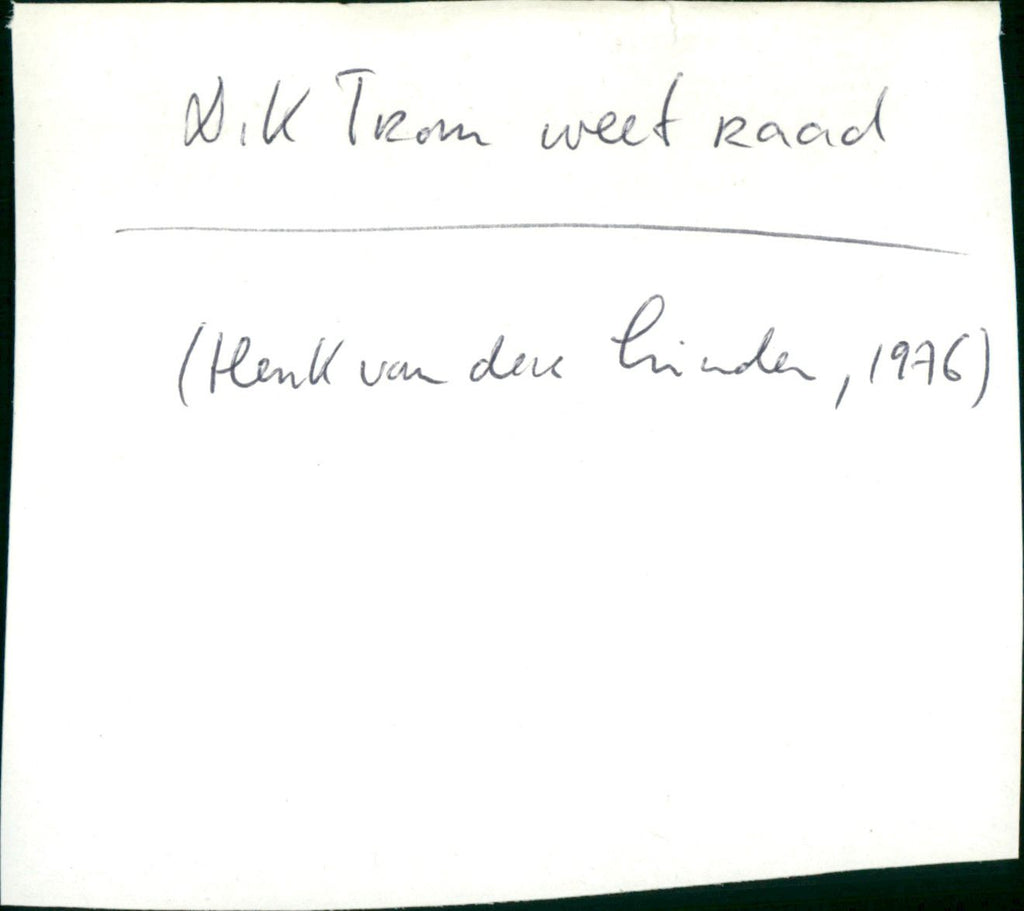 Dik Trom weet raad
(Henk van der Linden, 1976)